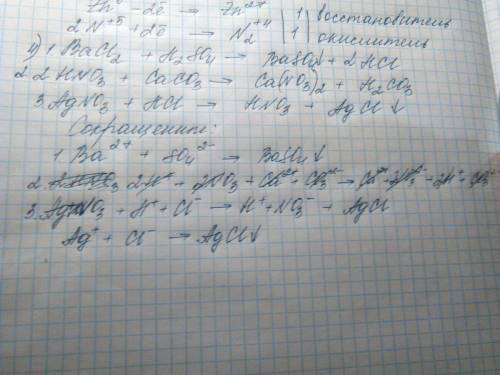 Zn⁰ - 2ē → Zn²⁺ | 1 | восстановитель
2N⁺⁵ + 2ē → N₂⁺⁴ | 1 | окислитель
4) 1 BaCl₂ + H₂SO₄ → BaSO₄↓ + 2HCl
2 2HNO₃ + CaCO₃ → Ca(NO₃)₂ + H₂CO₃
3. AgNO₃ + HCl → HNO₃ + AgCl↓
Сокращенные:
1 Ba²⁺ + SO₄²⁻ → BaSO₄↓
2 2H⁺ +
3. AgNO₃ + H⁺ + Cl⁻ → H⁺ + NO₃⁻ + AgCl
Ag⁺ + Cl⁻ → AgCl↓